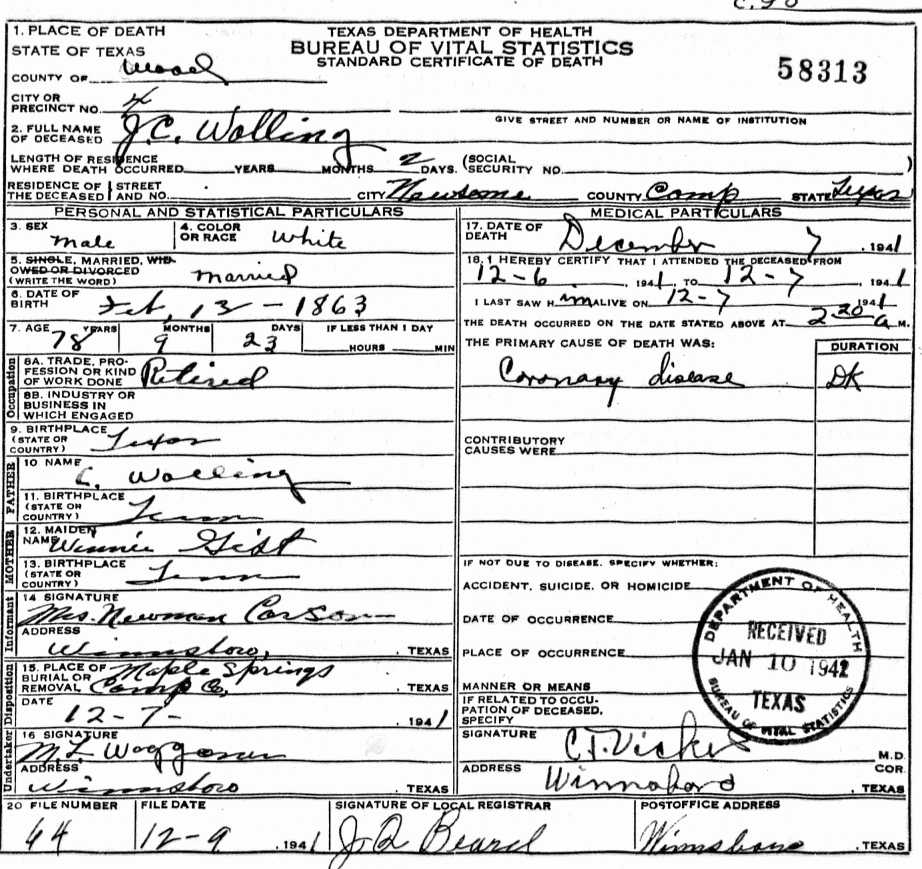 1. PLACE OF DEATH
STATE OF TEXAS
COUNTY OF Wood
TEXAS DEPARTMENT OF HEALTH
BUREAU OF VITAL STATISTICS
STANDARD CERTIFICATE OF DEATH
58313
CITY OR
PRECINCT NO. 4
GIVE STREET AND NUMBER OR NAME OF INSTITUTION
2. FULL NAME
OF DECEASED J.C. Walling
LENGTH OF RESIDENCE
WHERE DEATH OCCURRED YEARS MONTHS 2 DAYS. (SOCIAL
SECURITY NO. )
RESIDENCE OF STREET
THE DECEASED AND NO. CITY Newsome COUNTY Camp STATE Texas
PERSONAL AND STATISTICAL PARTICULARS
3. SEX
male
4. COLOR
OR RACE White
5. SINGLE, MARRIED, WID-
OWED OR DIVORCED
(WRITE THE WORD) married
6. DATE OF
BIRTH Feb, 13 - 1863
7. AGE YEARS MONTHS DAYS IF LESS THAN 1 DAY
78 9 23 HOURS MIN
Occupation
8A. TRADE, PRO-
FESSION OR KIND
OF WORK DONE Retired
8B. INDUSTRY OR
BUSINESS IN
WHICH ENGAGED
9. BIRTHPLACE
(STATE OR
COUNTRY) Texas
FATHER
10 NAME
C. Walling
11. BIRTHPLACE
(STATE OR
COUNTRY) Tenn
MOTHER
12. MAIDEN
NAME Winnie Gist
13. BIRTHPLACE
(STATE OR
COUNTRY) Tenn
Informant
14 SIGNATURE
Mrs. Newman Carson
ADDRESS
Winnsboro, , TEXAS
Undertaker Disposition
15. PLACE OF
BURIAL OR
REMOVAL Maple Springs
Camp Co, , TEXAS
DATE
12-7- , 1941
16 SIGNATURE
M. L. Waggoner
ADDRESS
Winnsboro , TEXAS
MEDICAL PARTICULARS
17. DATE OF
DEATH December 7 , 1941
18. I HEREBY CERTIFY THAT I ATTENDED THE DECEASED FROM
12-6 , 1941, TO 12-7 , 1941
I LAST SAW H im ALIVE ON 12-7 1941
THE DEATH OCCURRED ON THE DATE STATED ABOVE AT 2 30 a M.
THE PRIMARY CAUSE OF DEATH WAS: DURATION
Coronary disease DK
CONTRIBUTORY
CAUSES WERE
IF NOT DUE TO DISEASE, SPECIFY WHETHER:
ACCIDENT, SUICIDE, OR HOMICIDE
DATE OF OCCURRENCE
PLACE OF OCCURRENCE
MANNER OR MEANS
IF RELATED TO OCCU-
PATION OF DECEASED,
SPECIFY
DEPARTMENT OF HEALTH
RECEIVED
JAN 10 1942
TEXAS
BUREAU OF VITAL STATISTICS
SIGNATURE M.D.
ADDRESS COR.
Winnsboro , TEXAS
20 FILE NUMBER FILE DATE SIGNATURE OF LOCAL REGISTRAR POSTOFFICE ADDRESS
64 12-9 , 1941 J Q Beard Winnsboro , TEXAS